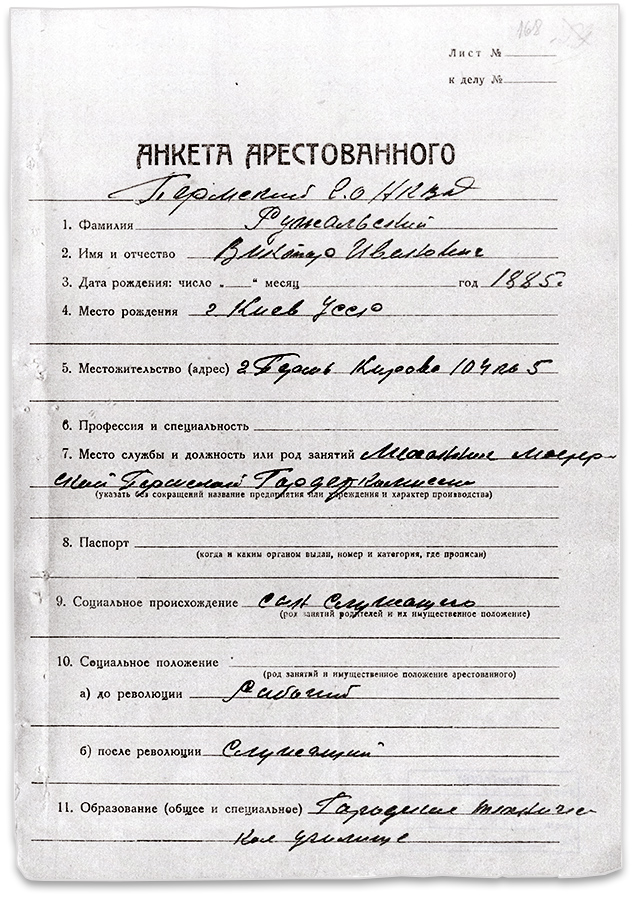 168
Лист №
к делу №
АНКЕТА АРЕСТОВАННОГО
Пермский Г.О НКВД
1. Фамилия Ружальский
2. Имя и отчество Виктор Иванович
3. Дата рождения: число „ “ месяц год 1885г
4. Место рождения г Киев УССР
5. Местожительство (адрес) г Пермь Кирова 104 кв 5
6. Профессия и специальность
7. Место службы и должность или род занятий Механик мастер-
ской Пермской Комиссии
(указать без сокращений название предприятия или учреждения и характер производства)
8. Паспорт
(когда и каким органом выдан, номер и категория, где прописан)
9. Социальное происхождение сын служащего
(род занятий родителей и их имущественное положение)
10. Социальное положение
(род занятий и имущественное положение арестованного)
а) до революции Рабочий
б) после революции Служащий
11. Образование (общее и специальное) Городское техниче-
кое училище